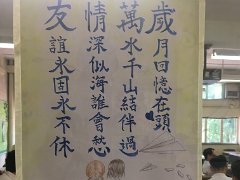 歲月回憶在♥頭
萬水千山結伴過
情深似海誰會愁
友誼永固永不休